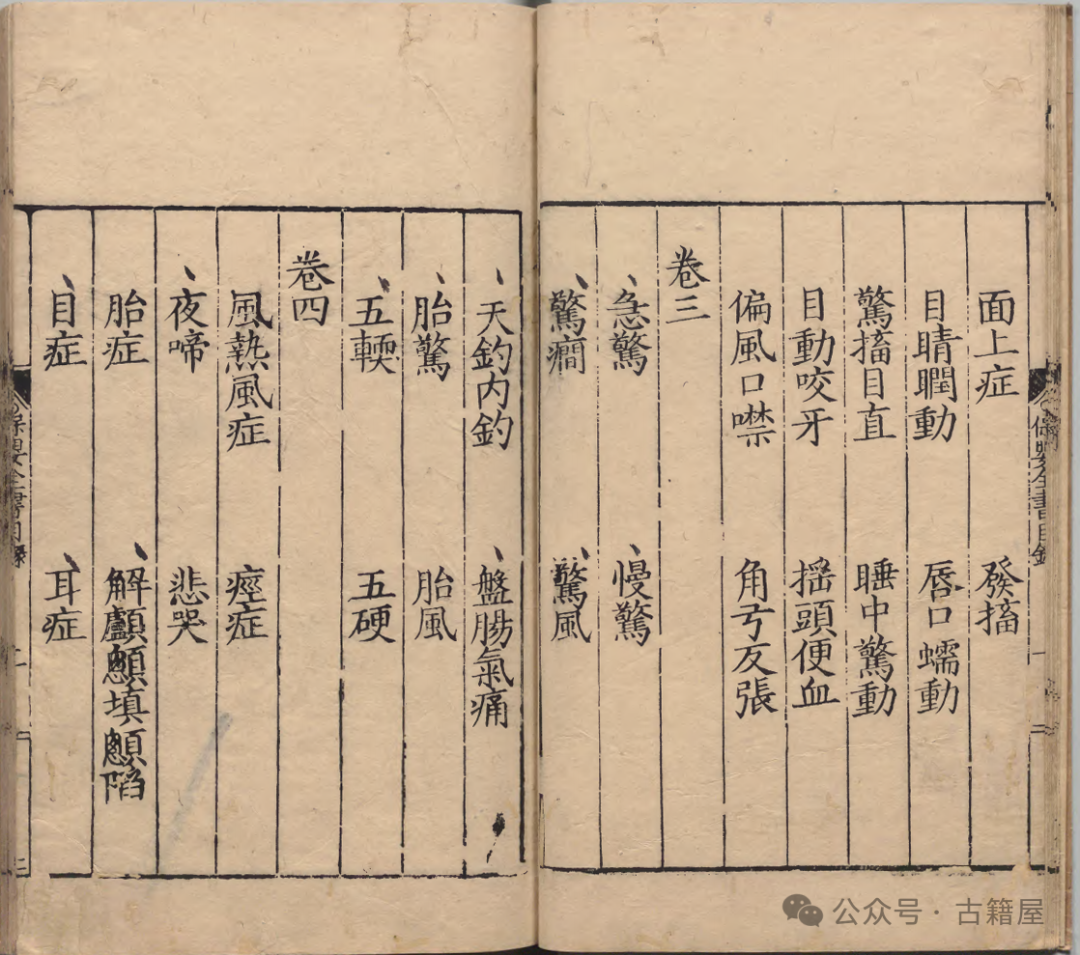 面上症 發搐
目睛瞤動 唇口蠕動
驚搐目直 睡中驚動
目動咬牙 揺頭便血
偏風口噤 角弓反張
卷三
急驚 慢驚
驚癇 驚風
天釣内釣 盤腸氣痛
胎驚 胎風
五䡖 五硬
卷四
風熱風症 痙症
夜啼 悲哭
胎症 解顱顖填顖陷
目症 耳症
保嬰全書目錄
保嬰全書目錄
公众号 · 古籍屋